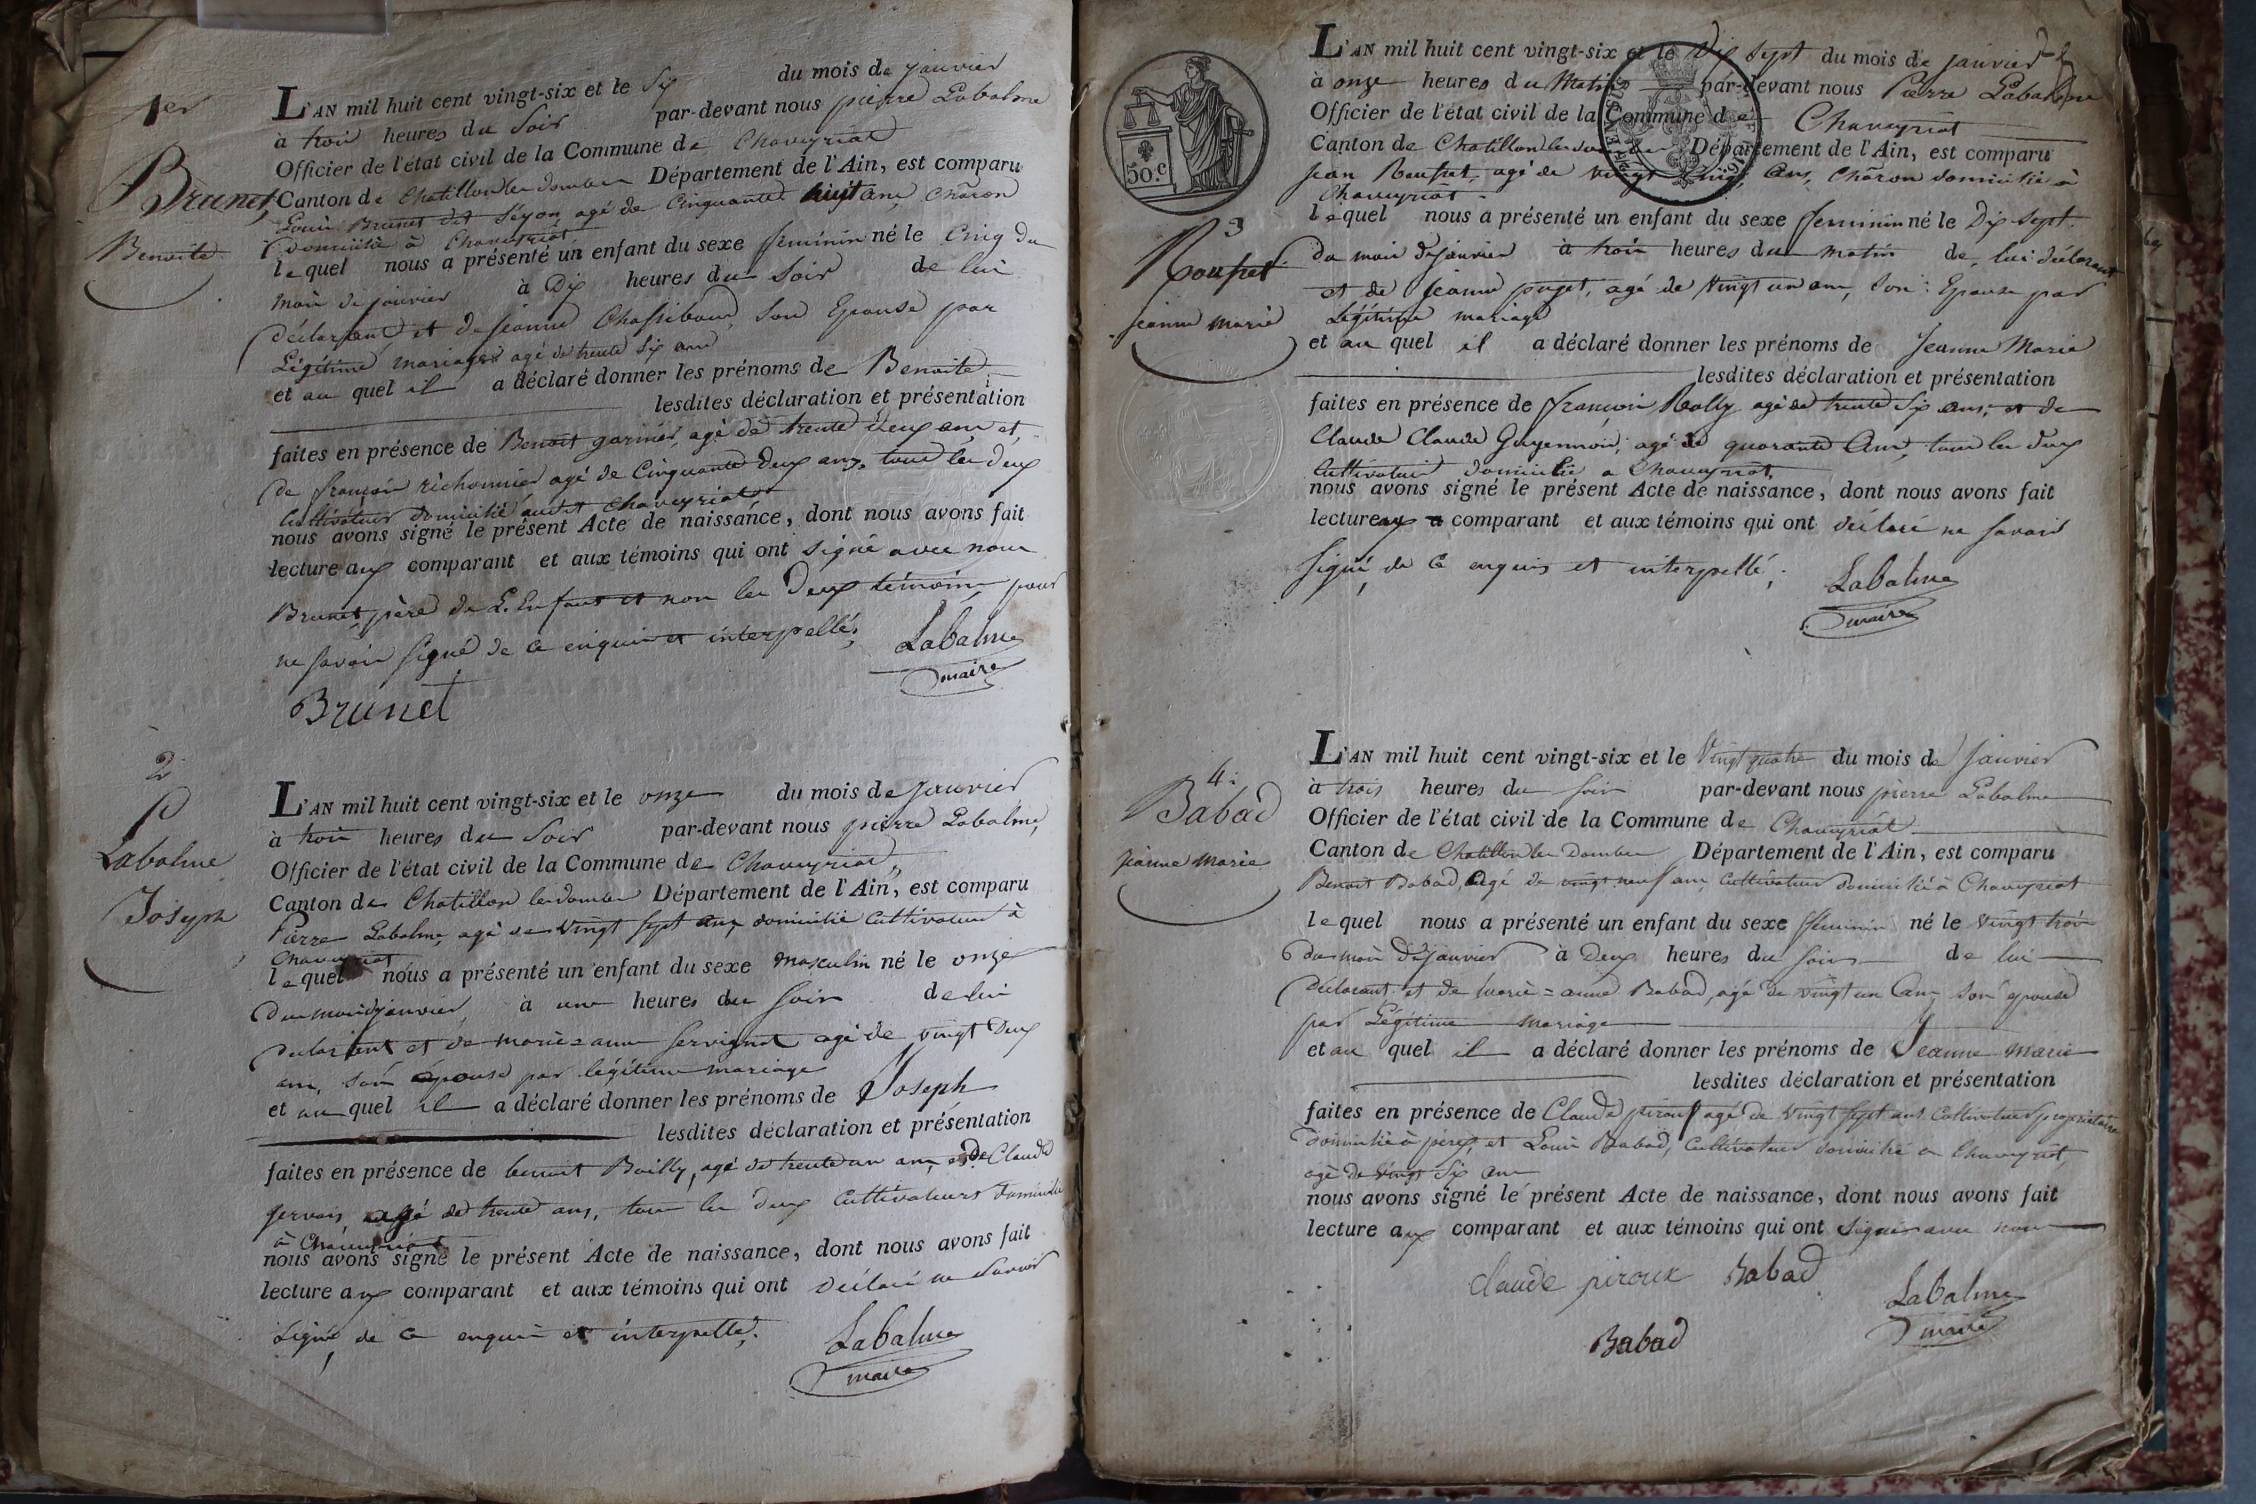 1er
Brunet,
Benoite
L'AN mil huit cent vingt-six et le Six du mois de janvier
à trois heures du Soir par-devant nous pierre Labalme
Officier de l'état civil de la Commune de Chaveyriat
Canton de Chatillon les dombes Département de l'Ain, est comparu
Louis Brunet dit Séyon, agé de Cinquante huit ans, charon
domicilié à Chaveyriat
lequel nous a présenté un enfant du sexe feminin né le Cinq du
mois de janvier à Dix heures du Soir de lui
déclarant et de jeanne Chassiboud, son Epouse par
Légitime mariage agé de trente Six ans
et au quel il a déclaré donner les prénoms de Benoite
lesdites déclaration et présentation
faites en présence de Benoit garnier, agé de trente deux ans, et
de françois richonnier agé de Cinquante Deux ans, tous les deux
Cultivateurs domicilié audit Chaveyriat
nous avons signé le présent Acte de naissance, dont nous avons fait
lecture aux comparant et aux témoins qui ont signé avec nous
Brunet père de L'Enfant et non les Deux témoins pour
ne savoir signé de ce enquis et interpellés,
Labalme
maire
Brunet
2
Labalme
Joseph
L'AN mil huit cent vingt-six et le onze du mois de janvier
à trois heures du Soir par-devant nous pierre Labalme,
Officier de l'état civil de la Commune de Chaveyriat,
Canton de Chatillon les dombes Département de l'Ain, est comparu
Pierre Labalme, agé de vingt sept ans domicilié Cultivateur à
Chaveyriat
lequel nous a présenté un enfant du sexe masculin né le onze
du mois de janvier, à une heures du soir de lui
declarant et de marie=anne servignat agé de vingt Deux
ans, son épouse par légitime mariage
et au quel il a déclaré donner les prénoms de Joseph
lesdites déclaration et présentation
faites en présence de benoit Bailly, agé de trente un ans, et de Claude
gervais, agé de trente ans, tous les deux Cultivateurs domicilié
à Chaveyriat
nous avons signé le présent Acte de naissance, dont nous avons fait
lecture aux comparant et aux témoins qui ont déclaré ne savoir
Signé, de ce enquis et interpellé,
Labalme
maire
50.c
3
jeanne marie
L'AN mil huit cent vingt-six et le Dix Sept du mois de janvier
à onze heures du Matin par-devant nous Pierre Labalme
Officier de l'état civil de la Commune de Chaveyriat
Canton de Chatillon les dombes Département de l'Ain, est comparu
jean agé de vingt ans, Charon domicilié à
Chaveyriat
lequel nous a présenté un enfant du sexe feminin né le Dix Sept
du mois de janvier à trois heures du matin de lui déclarant
et de jeanne pujet, agé de Vingt un ans, son Epouse par
Légitime mariage
et au quel il a déclaré donner les prénoms de Jeanne Marie
lesdites déclaration et présentation
faites en présence de françois Rolly agé de trente Six ans, et de
Claude Claude Guyennon, agé de quarante Ans, tous les deux
Cultivateurs domicilié a Chaveyriat,
nous avons signé le présent Acte de naissance, dont nous avons fait
lecture aux comparant et aux témoins qui ont déclaré ne savoir
signé, de ce enquis et interpellé,
Labalme
maire
4.
Babad
jeanne Marie
L'AN mil huit cent vingt-six et le Vingt quatre du mois de janvier
à trois heures du soir par-devant nous pierre Labalme
Officier de l'état civil de la Commune de Chaveyriat
Canton de Chatillon les Dombes Département de l'Ain, est comparu
Benoit Babad, agé de vingt neuf ans, cultivateur domicilié à Chaveyriat
lequel nous a présenté un enfant du sexe féminin né le vingt trois
du mois de janvier à Deux heures du soir de lui
déclarant et de marie=anne Babad, agé de vingt un ans, son épouse
par Légitime mariage
et au quel il a déclaré donner les prénoms de Jeanne Marie
lesdites déclaration et présentation
faites en présence de Claude piroux agé de vingt sept ans cultivateur propriétaire
domicilié à perex, et Louis Babad, Cultivateur domicilié a Chaveyriat,
agé de vingt six ans
nous avons signé le présent Acte de naissance, dont nous avons fait
lecture aux comparant et aux témoins qui ont signés avec nous
Claude piroux Babad
Labalme
maire
Babad